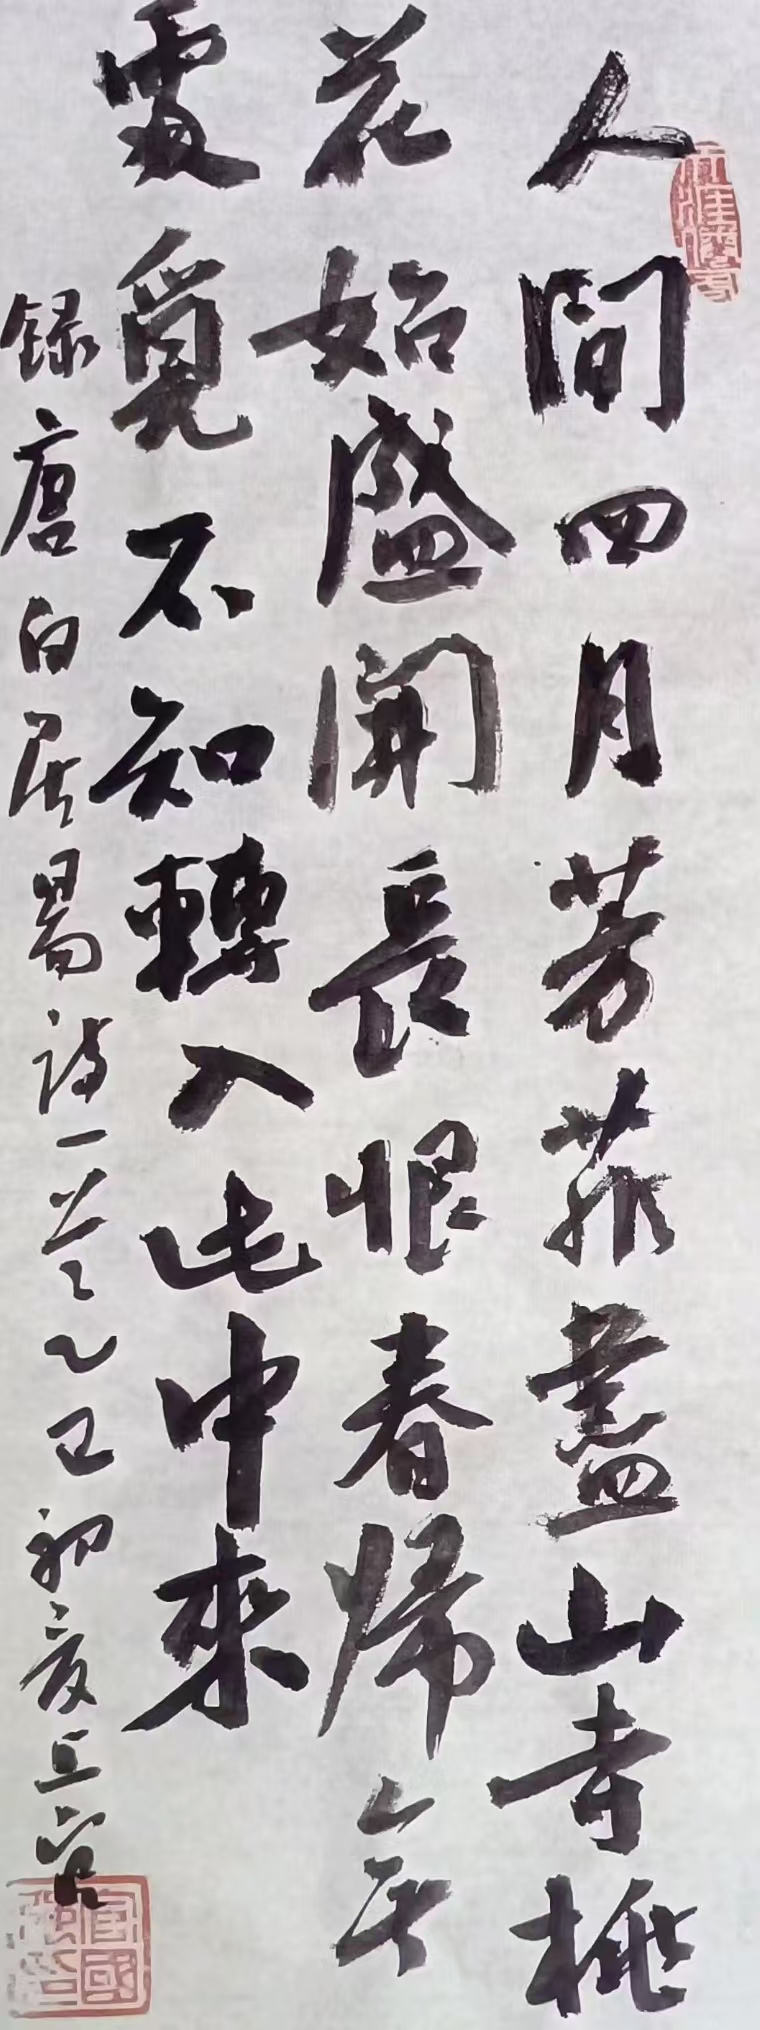 人間四月芳菲盡山寺桃
花始盛開長恨春歸無
處覓不知轉入此中來
錄唐白居易詩一首乙巳初夏上官